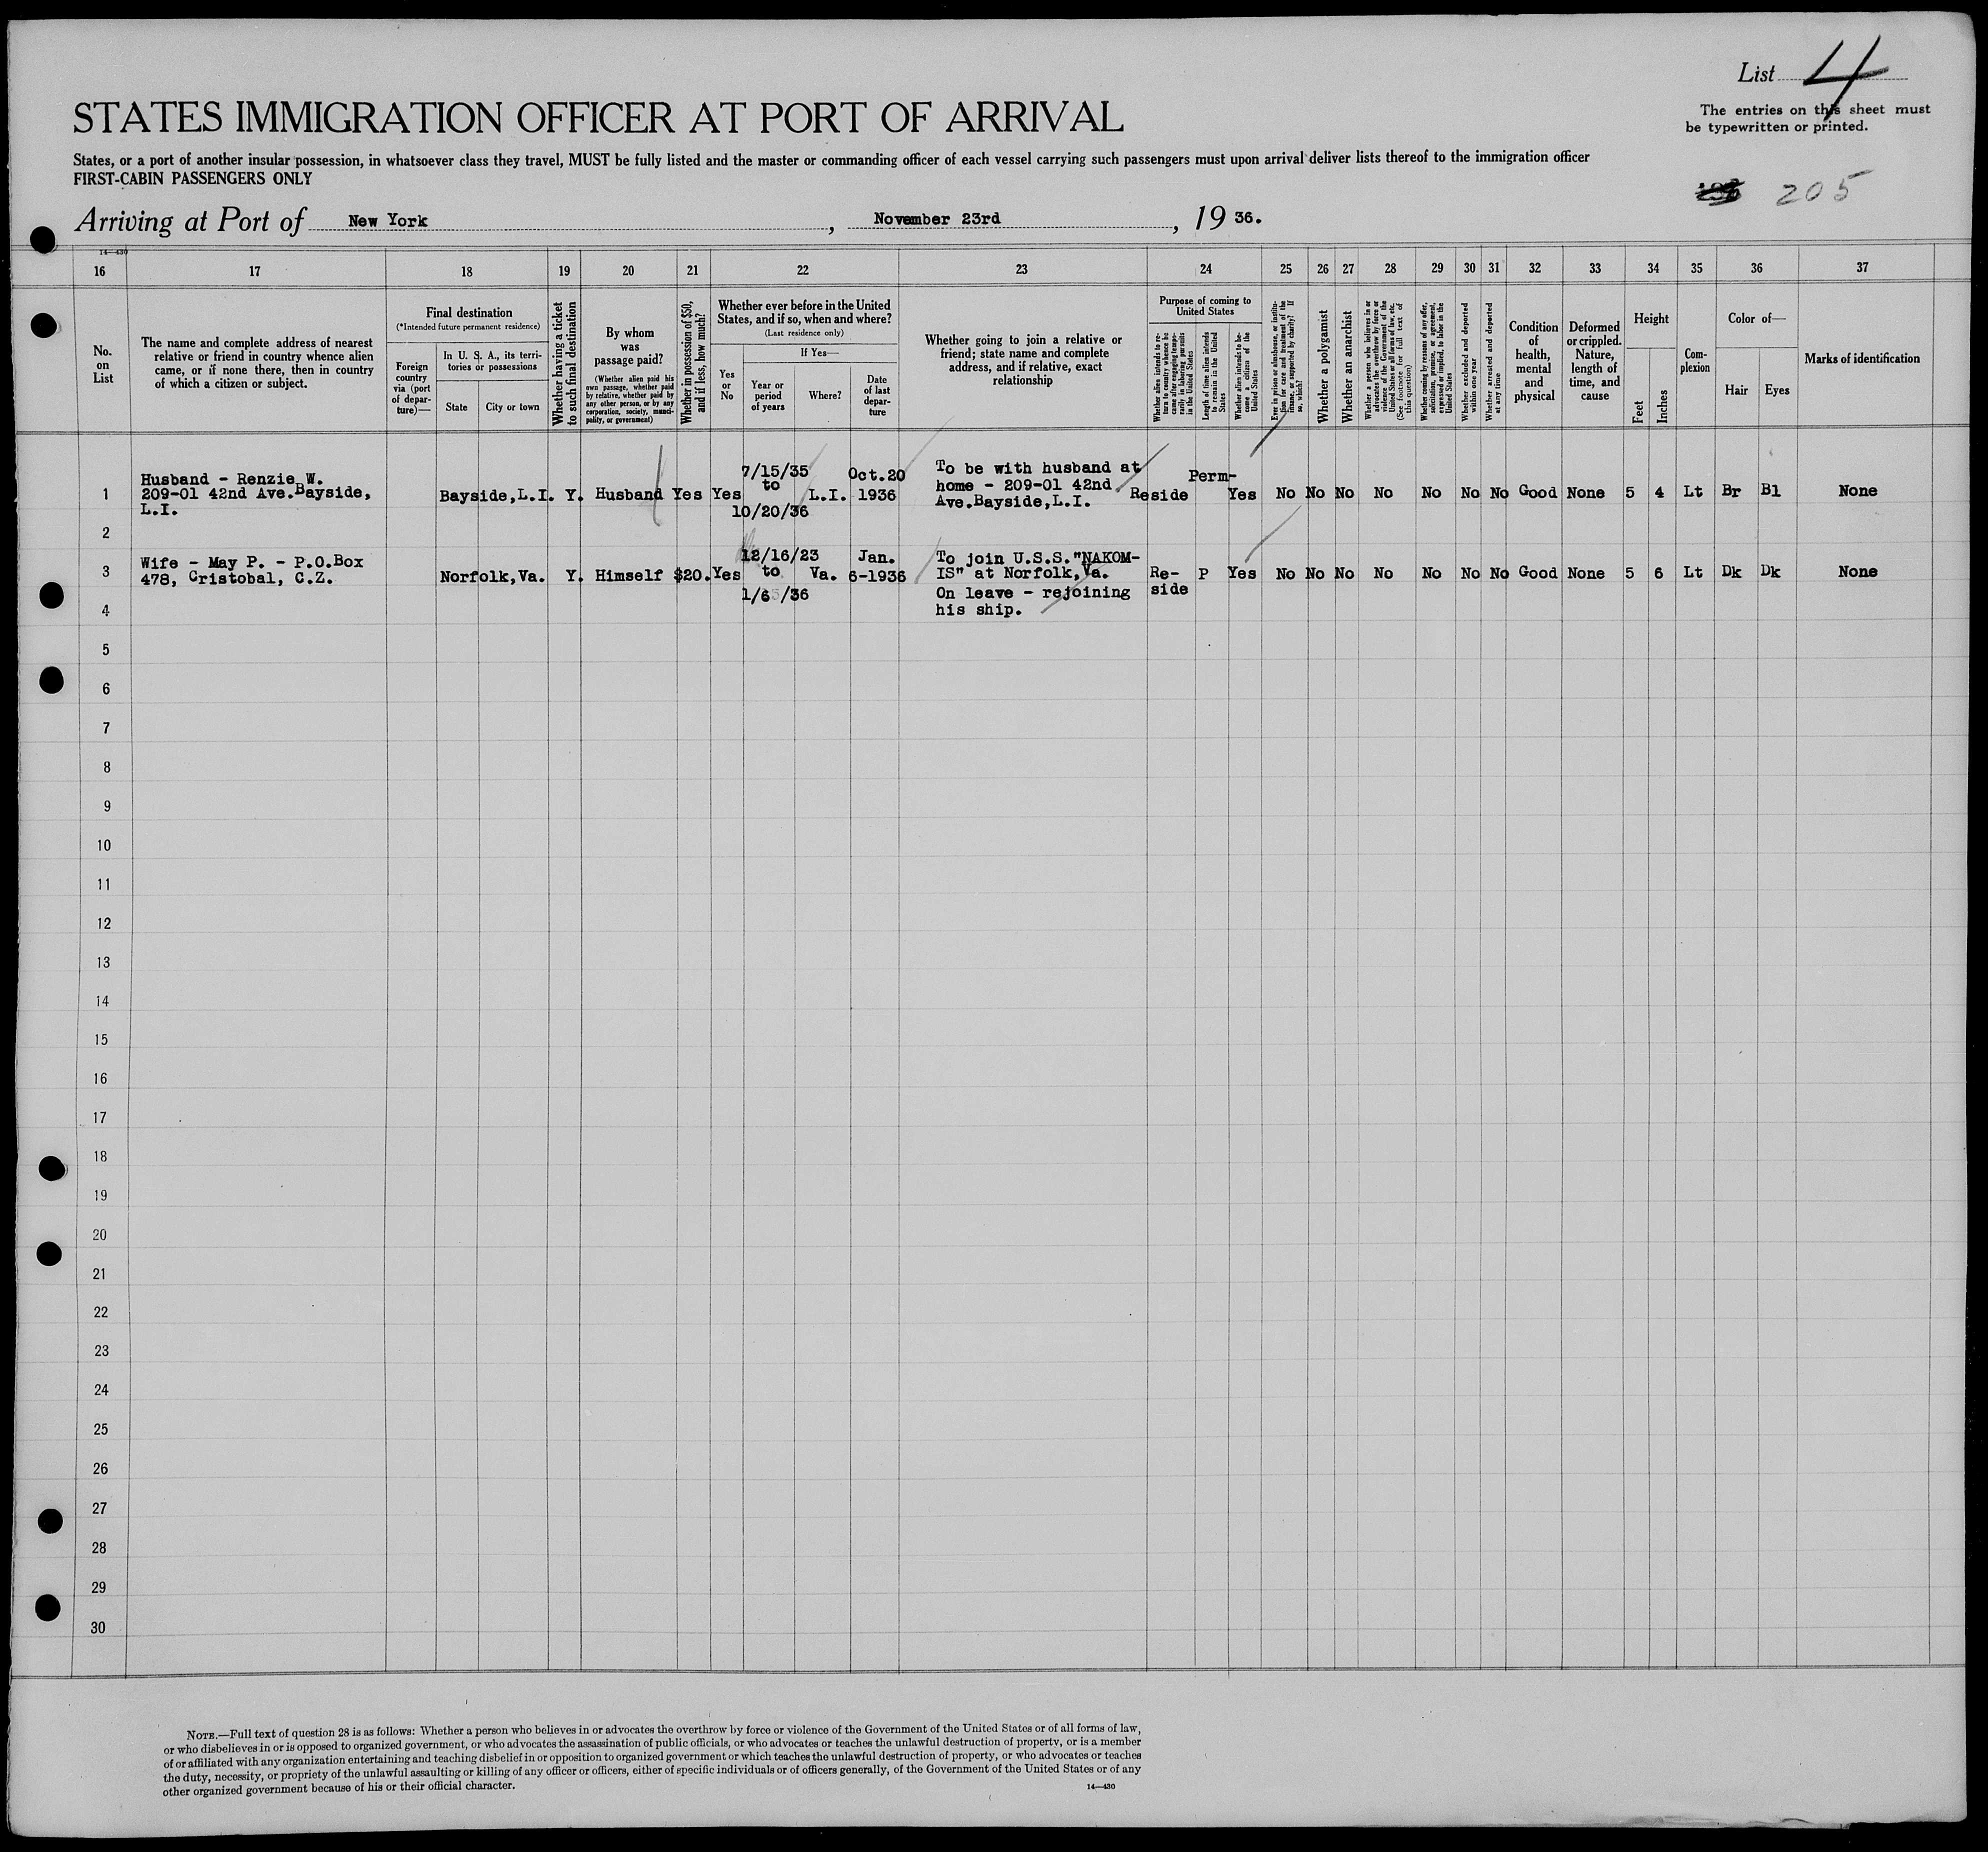 List 4
STATES IMMIGRATION OFFICER AT PORT OF ARRIVAL
The entries on this sheet must
be typewritten or printed.
States, or a port of another insular possession, in whatsoever class they travel, MUST be fully listed and the master or commanding officer of each vessel carrying such passengers must upon arrival deliver lists thereof to the immigration officer
FIRST-CABIN PASSENGERS ONLY
205
Arriving at Port of New York, November 23rd, 19 36.
14—430
16 17 18 19 20 21 22 23 24 25 26 27 28 29 30 31 32 33 34 35 36 37
No.
on
List
The name and complete address of nearest
relative or friend in country whence alien
came, or if none there, then in country
of which a citizen or subject.
Final destination
(*Intended future permanent residence)
Foreign
country
via (port
of depar-
ture)—
In U. S. A., its terri-
tories or possessions
State
City or town
Whether having a ticket
to such final destination
By whom
was
passage paid?
(Whether alien paid his
own passage, whether paid
by relative, whether paid by
any other person, or by any
corporation, society, munici-
pality, or government)
Whether in possession of $50,
and if less, how much?
Whether ever before in the United
States, and if so, when and where?
(Last residence only)
Yes
or
No
If Yes—
Year or
period
of years
Where?
Date
of last
depar-
ture
Whether going to join a relative or
friend; state name and complete
address, and if relative, exact
relationship
Purpose of coming to
United States
Whether alien intends to re-
turn to country whence he
came after engaging tempo-
rarily in laboring pursuits
in the United States
Length of time alien intends
to remain in the United
States
Whether alien intends to be-
come a citizen of the
United States
Ever in prison or almshouse, or institu-
tion for care and treatment of the
insane, or supported by charity? If
so, which?
Whether a polygamist
Whether an anarchist
Whether a person who believes in or
advocates the overthrow by force or
violence of the Government of the
United States or all forms of law, etc.
(See footnote for full text of
this question)
Whether coming by reasons of any offer,
solicitation, promise, or agreement,
expressed or implied, to labor in the
United States
Whether excluded and deported
within one year
Whether arrested and deported
at any time
Condition
of
health,
mental
and
physical
Deformed
or crippled.
Nature,
length of
time, and
cause
Height
Feet
Inches
Com-
plexion
Color of—
Hair
Eyes
Marks of identification
1
Husband - Renzie W.
209-01 42nd Ave.Bayside,
L.I.
Bayside,L.I. Y. Husband Yes Yes
7/15/35
to
10/20/36
L.I.
Oct.20
1936
To be with husband at
home - 209-01 42nd
Ave.Bayside,L.I.
Reside
Perm-
Yes No No No No No No No Good None 5 4 Lt Br Bl None
2
3
Wife - May P. - P.O.Box
478, Cristobal, C.Z.
Norfolk,Va. Y. Himself $20. Yes
12/16/23
to
1/6 /36
Va.
Jan.
6-1936
To join U.S.S."NAKOM-
IS" at Norfolk,Va.
On leave - rejoining
his ship.
Re-
side
P Yes No No No No No No No Good None 5 6 Lt Dk Dk None
4
5
6
7
8
9
10
11
12
13
14
15
16
17
18
19
20
21
22
23
24
25
26
27
28
29
30
NOTE.—Full text of question 28 is as follows: Whether a person who believes in or advocates the overthrow by force or violence of the Government of the United States or of all forms of law,
or who disbelieves in or is opposed to organized government, or who advocates the assassination of public officials, or who advocates or teaches the unlawful destruction of property, or is a member
of or affiliated with any organization entertaining and teaching disbelief in or opposition to organized government or which teaches the unlawful destruction of property, or who advocates or teaches
the duty, necessity, or propriety of the unlawful assaulting or killing of any officer or officers, either of specific individuals or of officers generally, of the Government of the United States or of any
other organized government because of his or their official character.
14—430